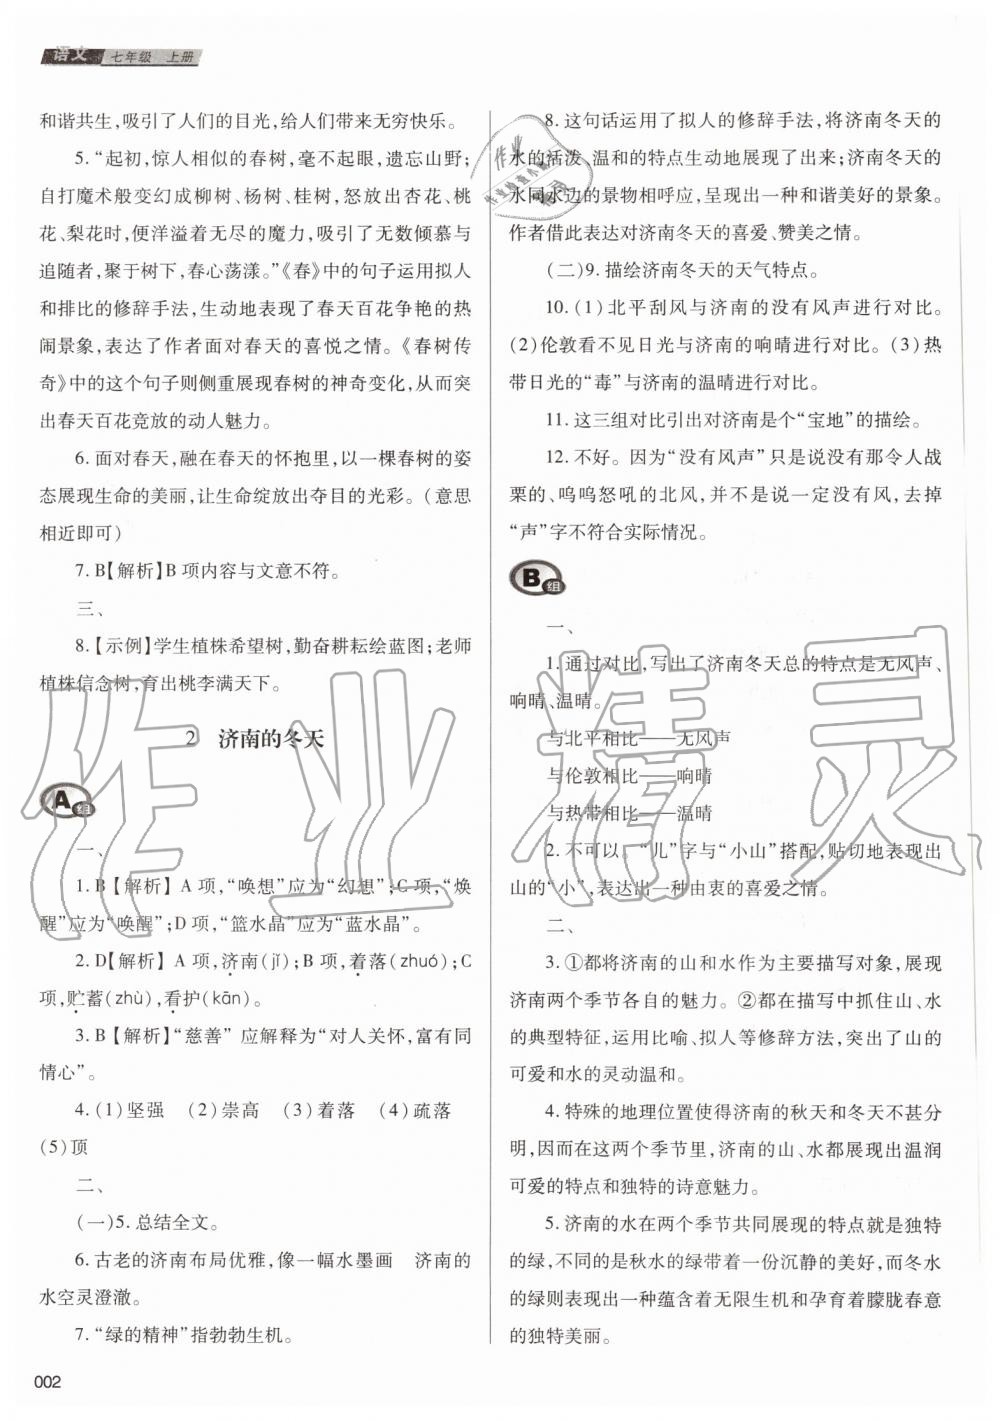 语文 七年级 上册
和谐共生,吸引了人们的目光,给人们带来无穷快乐。
5.“起初,惊人相似的春树,毫不起眼,遗忘山野;
自打魔术般变幻成柳树、杨树、桂树,怒放出杏花、桃
花、梨花时,便洋溢着无尽的魔力,吸引了无数倾慕与
追随者,聚于树下,春心荡漾。”《春》中的句子运用拟人
和排比的修辞手法,生动地表现了春天百花争艳的热
闹景象,表达了作者面对春天的喜悦之情。《春树传
奇》中的这个句子则侧重展现春树的神奇变化,从而突
出春天百花竞放的动人魅力。
6. 面对春天,融在春天的怀抱里,以一棵春树的姿
态展现生命的美丽,让生命绽放出夺目的光彩。(意思
相近即可)
7. B【解析】B 项内容与文意不符。
三、
8.【示例】学生植株希望树,勤奋耕耘绘蓝图;老师
植株信念树,育出桃李满天下。
2 济南的冬天
A组
一、
1. B【解析】 A 项,“唤想”应为“幻想”;C 项,“焕
醒”应为“唤醒”;D 项,“篮水晶”应为“蓝水晶”。
2. D【解析】 A 项,济南(jǐ);B 项,着落(zhuó);C
项,贮蓄(zhù),看护(kān)。
3. B【解析】“慈善” 应解释为“对人关怀,富有同
情心”。
4. (1)坚强 (2)崇高 (3)着落 (4)疏落
(5)顶
二、
(一)5. 总结全文。
6. 古老的济南布局优雅,像一幅水墨画 济南的
水空灵澄澈。
7. “绿的精神”指勃勃生机。
002
8. 这句话运用了拟人的修辞手法,将济南冬天的
水的活泼、温和的特点生动地展现了出来;济南冬天的
水同水边的景物相呼应,呈现出一种和谐美好的景象。
作者借此表达对济南冬天的喜爱、赞美之情。
(二)9. 描绘济南冬天的天气特点。
10. (1)北平刮风与济南的没有风声进行对比。
(2)伦敦看不见日光与济南的响晴进行对比。(3)热
带日光的“毒”与济南的温晴进行对比。
11. 这三组对比引出对济南是个“宝地”的描绘。
12. 不好。因为“没有风声”只是说没有那令人战
栗的、呜呜怒吼的北风,并不是说一定没有风,去掉
“声”字不符合实际情况。
B组
一、
1. 通过对比,写出了济南冬天总的特点是无风声、
响晴、温晴。
与北平相比——无风声
与伦敦相比——响晴
与热带相比——温晴
2. 不可以。“儿”字与“小山”搭配,贴切地表现出
山的“小”,表达出一种由衷的喜爱之情。
二、
3. ①都将济南的山和水作为主要描写对象,展现
济南两个季节各自的魅力。②都在描写中抓住山、水
的典型特征,运用比喻、拟人等修辞方法,突出了山的
可爱和水的灵动温和。
4. 特殊的地理位置使得济南的秋天和冬天不甚分
明,因而在这两个季节里,济南的山、水都展现出温润
可爱的特点和独特的诗意魅力。
5. 济南的水在两个季节共同展现的特点就是独特
的绿,不同的是秋水的绿带着一份沉静的美好,而冬水
的绿则表现出一种蕴含着无限生机和孕育着朦胧春意
的独特美丽。
作业精灵